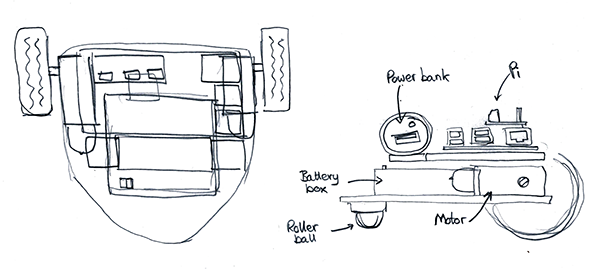 Power bank
Pi
Battery
box
Roller
ball
Motor